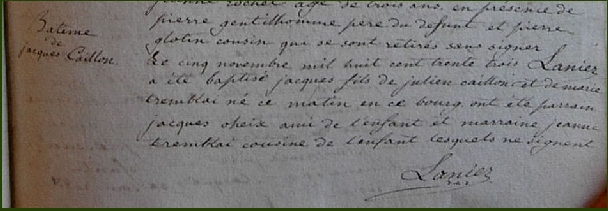 jeanne cochet age de trois ans, en présence de
pierre gentilhomme pere du defunt et pierre
glotin cousin qui se sont retirés sans signer
Lanier
Batême
de
jacques Caillon
Le cinq novembre mil huit cent trente trois
a été baptisé jacques fils de julien caillon et de marie
tremblai né ce matin en ce bourg ont été parrain
jacques oheix ami de l'enfant et marraine jeanne
tremblai cousine de l'enfant lesquels ne signent
Lanier